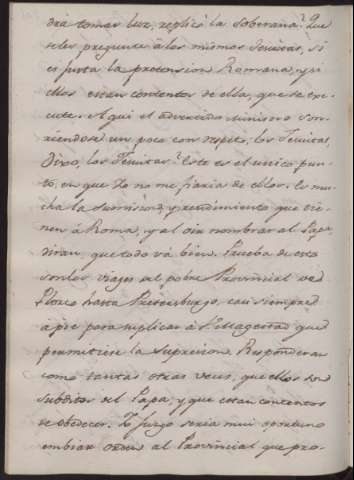 drá tomar luz, replicó la soberana? Que
se les pregunte á los mismos Jesuitas, si
es justa la pretension Romana, y si
ellos estan contentos de ella, que se exe-
cute. Aqui el advertido Ministro son-
riendose un poco con respeto, los Jesuitas,
Dixo, los Jesuitas? Este es el unico pun-
to, en que Yo no me fiaria de ellos. Es mu-
cha la sumision, y rendimiento que tie-
nen á Roma, y al oir nombrar al Papa
diran, que todo vá bien. Prueba de esto
son los viajes del pobre Provincial de
Plozco hasta Petersburgo, casi siempre
á pie para suplicar á S. Magestad que
permitiese la Supresion. Responderan
como tantas otras veces, que ellos son
subditos del Papa, y que estan contentos
de obedecer. Yo juzgo seria mui oportuno
embiar orden al Provincial que pro-